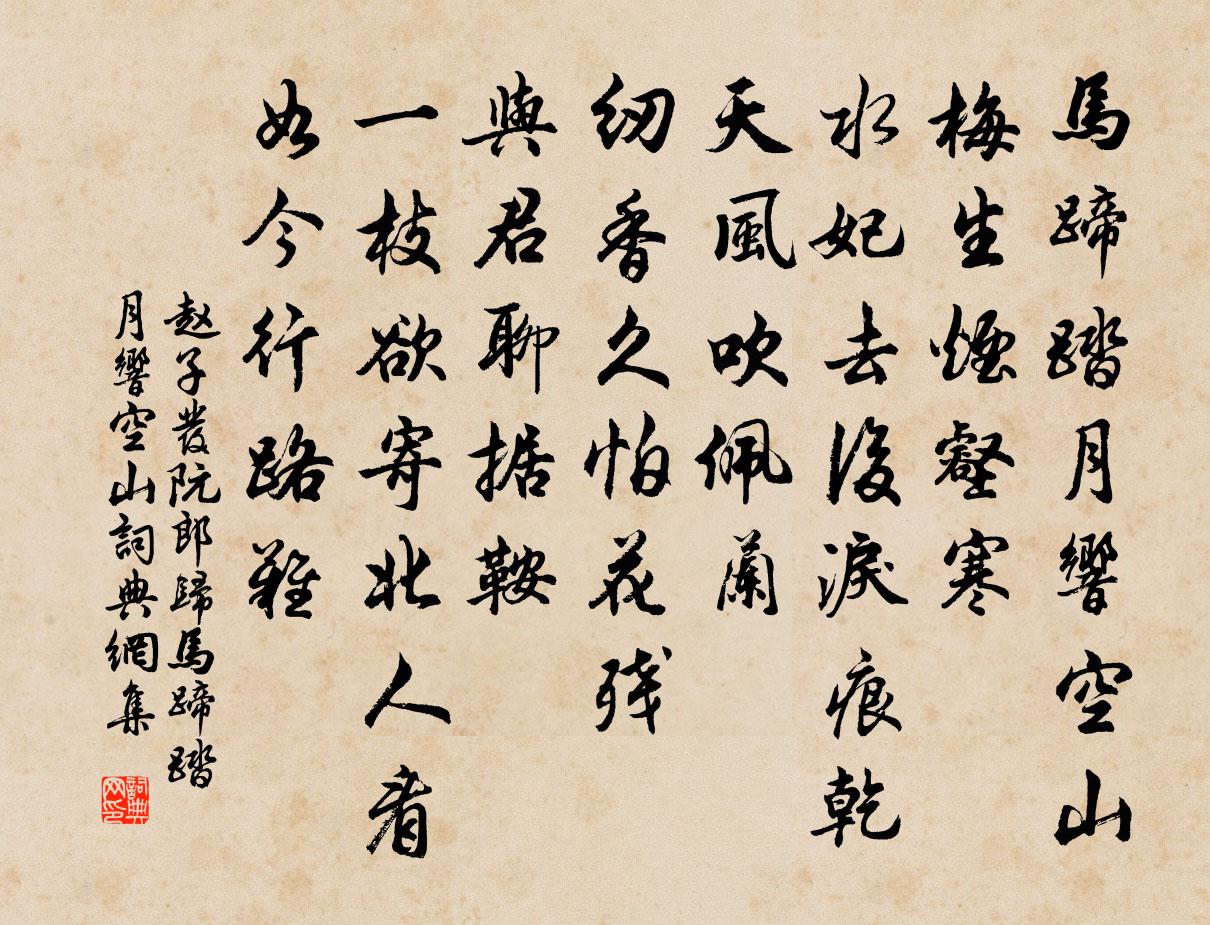 馬蹄踏月響空山
梅生煙壑寒
水妃去後淚痕乾
天風吹佩蘭
紉香久怕花残
與君聊據鞍
一枝欲寄北人看
如今行路難
赵子發阮郎歸馬蹄踏
月響空山詞典網集
詞典网印